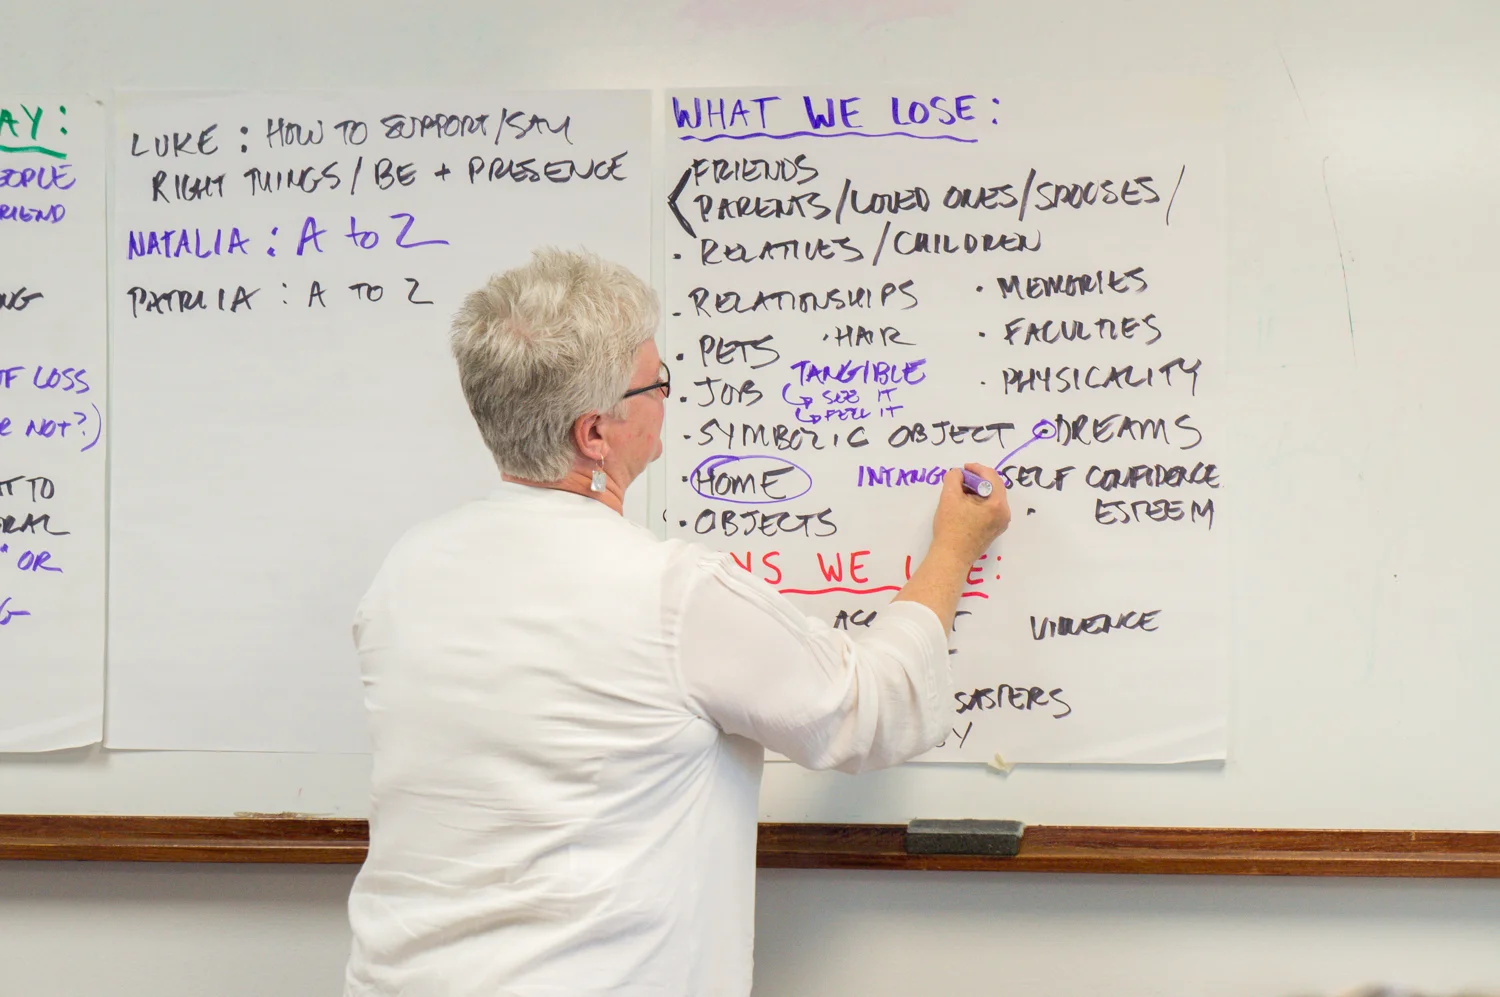 AY:
EOPLE
RIEND
NG
OF LOSS
NOT?)
TO
RAL
OR
G
LUKE : HOW TO SUPPORT/SAY
RIGHT THINGS/ BE + PRESENCE
NATALIA : A to Z
PATRICIA : A TO Z
WHAT WE LOSE:
FRIENDS
PARENTS/LOVED ONES/SPOUSES/
• RELATIVES/CHILDREN
• RELATIONSHIPS
• MEMORIES
• PETS
• HAIR
• FACULTIES
• JOB
TANGIBLE
SEE IT
FEEL IT
• PHYSICALITY
• SYMBOLIC OBJECT
DREAMS
• HOME
INTANG
SELF CONFIDENCE
• ESTEEM
• OBJECTS
YS WE L E:
ACC T
VIOLENCE
SASTERS
Y